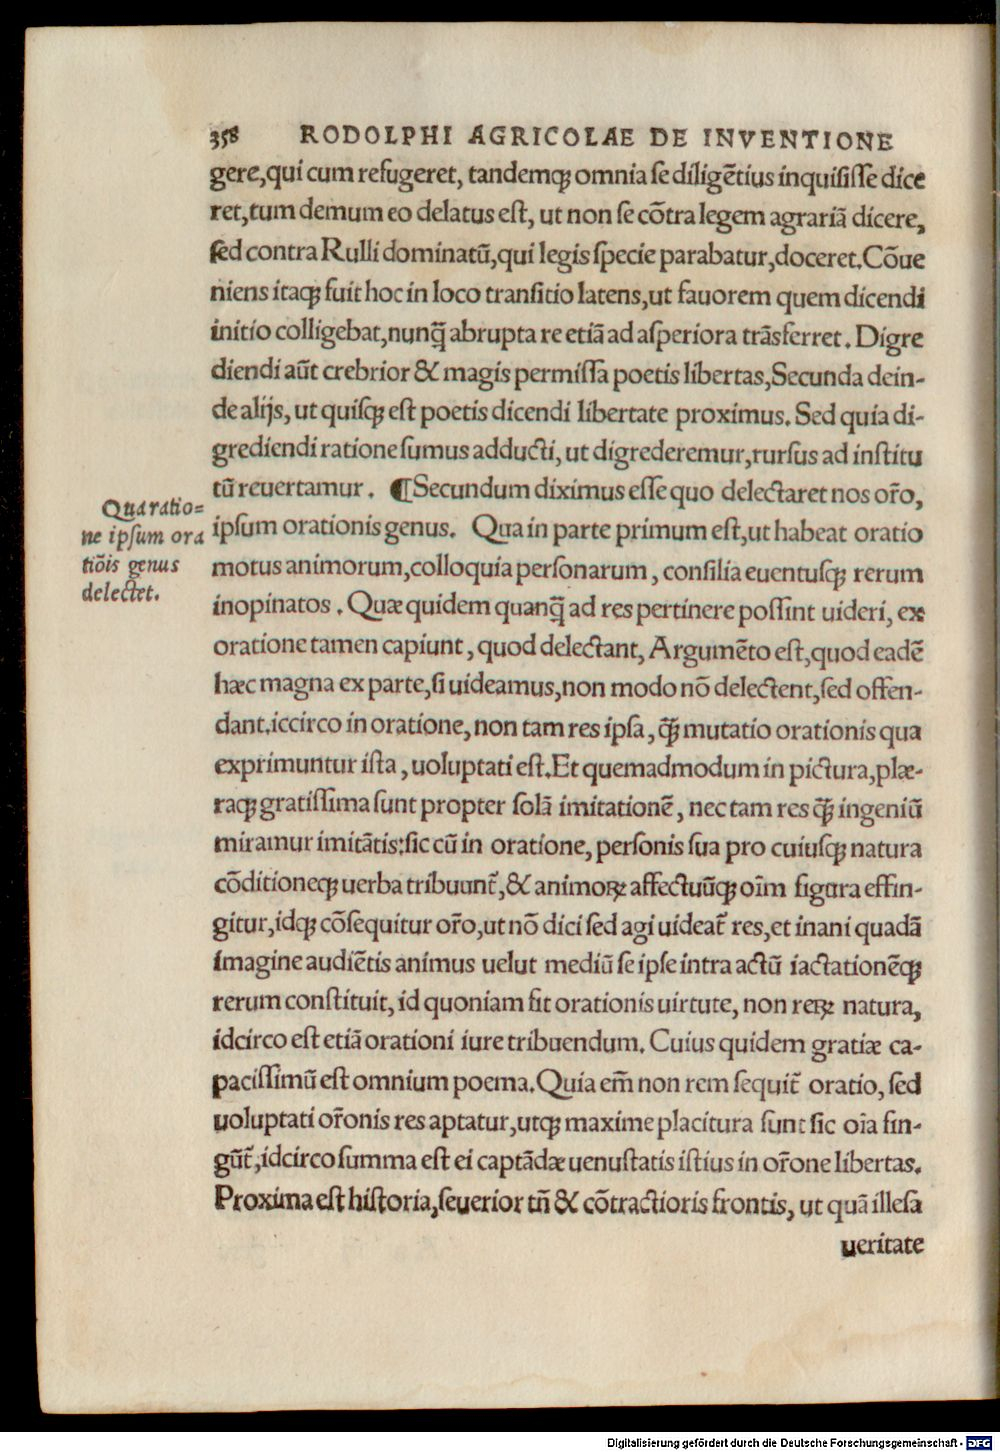 358 RODOLPHI AGRICOLAE DE INVENTIONE
gere,qui cum refugeret, tandemqꝫ omnia se diligẽtius inquisisse dice
ret,tum demum eo delatus est, ut non se cõtra legem agrariã dicere,
sed contra Rulli dominatũ,qui legis specie parabatur,doceret.Cõue
niens itaqꝫ fuit hoc in loco transitio latens,ut fauorem quem dicendi
initio colligebat,nunq̃ abrupta re etiã ad asperiora trãsferret. Digre
diendi aũt crebrior & magis permissa poetis libertas,Secunda dein-
de alijs, ut quisqꝫ est poetis dicendi libertate proximus. Sed quia di-
grediendi ratione sumus adducti, ut digrederemur,rursus ad institu
tũ reuertamur. ¶Secundum diximus esse quo delectaret nos or̃o,
ipsum orationis genus. Qua in parte primum est,ut habeat oratio
motus animorum,colloquia personarum, consilia euentusqꝫ rerum
inopinatos. Quæ quidem quanq̃ ad res pertinere possint uideri, ex
oratione tamen capiunt, quod delectant, Argumẽto est,quod eadẽ
hæc magna ex parte,si uideamus,non modo nõ delectent,sed offen-
dant.iccirco in oratione, non tam res ipsa, q̃ mutatio orationis qua
exprimuntur ista, uoluptati est.Et quemadmodum in pictura,plæ-
raqꝫ gratissima sunt propter solã imitationẽ, nec tam res q̃ ingeniũ
miramur imitãtis:sic cũ in oratione, personis sua pro cuiusqꝫ natura
cõditioneqꝫ uerba tribuunt̃,& animoꝝ affectuũqꝫ oĩm figura effin-
gitur,idqꝫ cõsequitur or̃o,ut nõ dici sed agi uideat̃ res,et inani quadã
imagine audiẽtis animus uelut mediũ se ipse intra actũ iactationẽqꝫ
rerum constituit, id quoniam fit orationis uirtute, non reꝝ natura,
idcirco est etiã orationi iure tribuendum. Cuius quidem gratiæ ca-
pacissimũ est omnium poema.Quia em̃ non rem sequit̃ oratio, sed
uoluptati or̃onis res aptatur,utqꝫ maxime placitura sunt sic oĩa fin-
gũt̃,idcirco summa est ei captãdæ uenustatis istius in or̃one libertas.
Proxima est historia,seuerior tñ & cõtractioris frontis, ut quã illesa
ueritate
Qua ratio=
ne ipsum ora
tiõis genus
delectet.
Digitalisierung gefördert durch die Deutsche Forschungsgemeinschaft - DFG